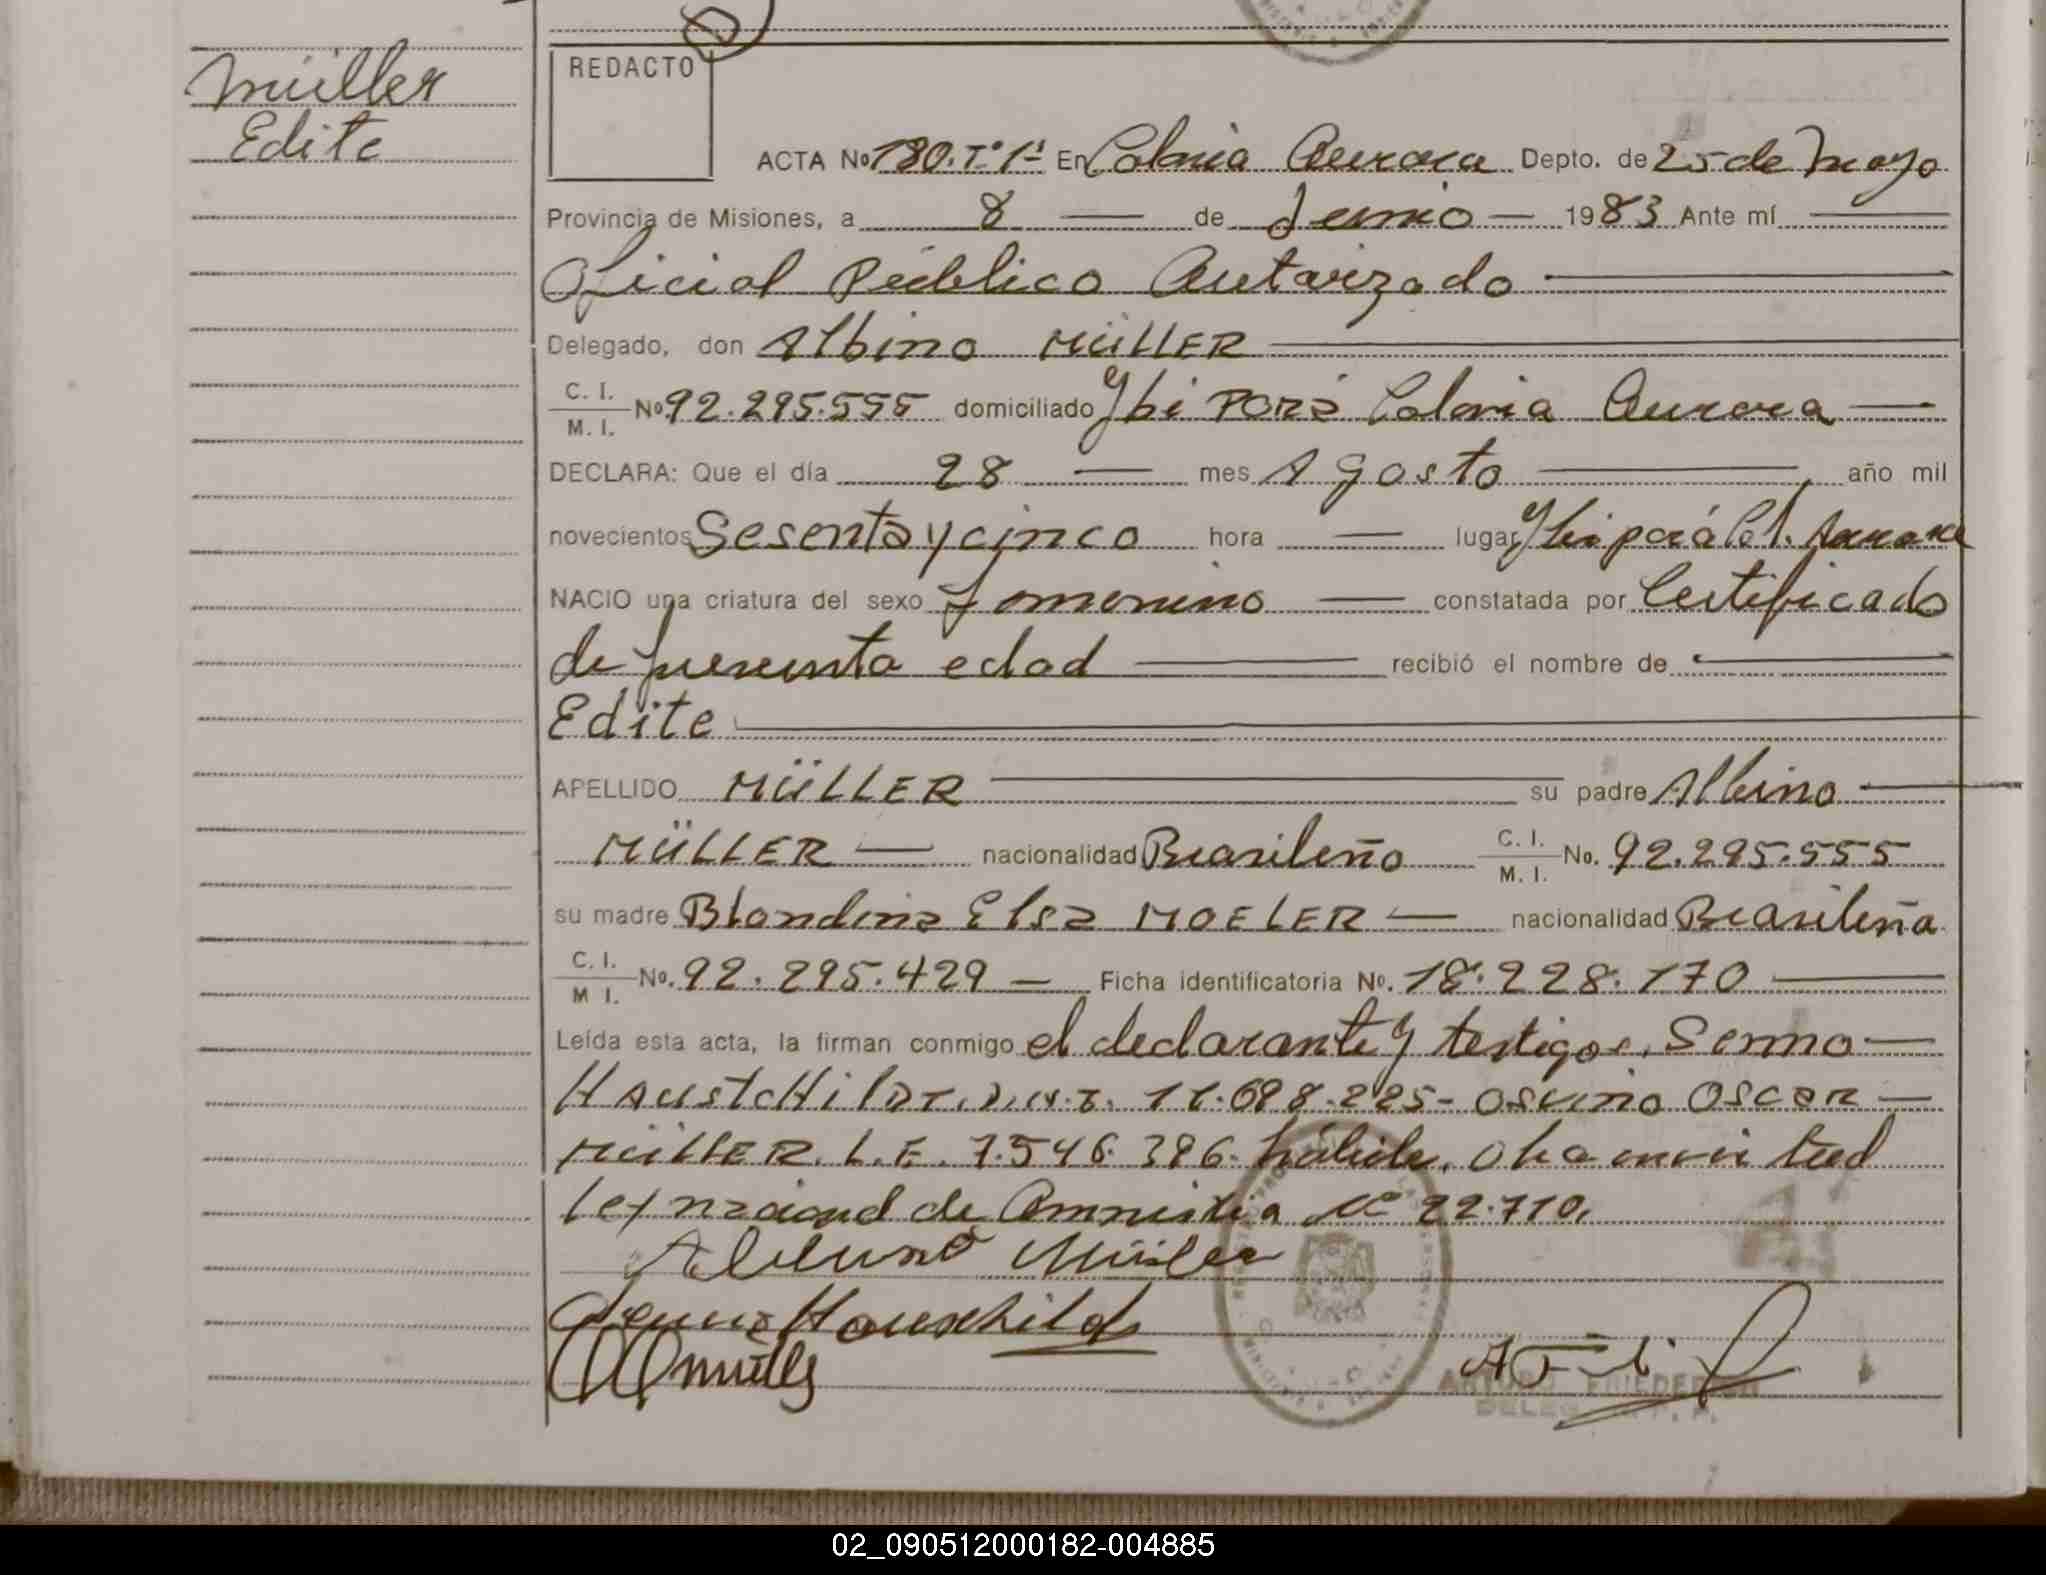 Müller
Edite
REDACTO
ACTA No 180. T° 1° En Colonia Aurora Depto. de 25 de Mayo
Provincia de Misiones, a 8 de Junio 1983 Ante mí
Oficial Público Autorizado
Delegado, don Albino MÜLLER
C. I.
M. I.
No 92.295.555 domiciliado Ybi Porá Colonia Aurora
DECLARA: Que el día 28 mes Agosto año mil
novecientos Sesenta y cinco hora lugar Ybi porá Col. Aurora
NACIO una criatura del sexo femenino constatada por Certificado
de presunta edad recibió el nombre de
Edite
APELLIDO MÜLLER su padre Albino
MÜLLER nacionalidad Brasileño C. I. M. I. No. 92.295.555
su madre Blondina Elsa MOELER nacionalidad Brasileña
C. I.
M I.
No. 92.295.429 Ficha identificatoria No. 18.228.170
Leída esta acta, la firman conmigo el declarante y testigos, Senno
HaustcHilDT. D.N.I. 11.698.225- Osvino OSCAR
MÜLLER. L.E. 7.546.396.
Ley nacional de Amnistia N° 22.710.
Albino Müller
Hauschild
Müller
ARTURO FRIEDERICH
02_090512000182-004885